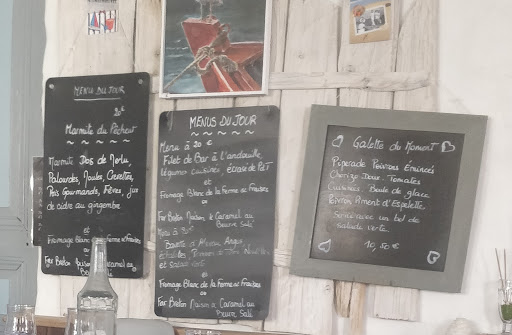 MENUS DU JOUR
20€
Marmite du Pêcheur
Marmite Dos de Merlu,
Palourdes, Moules, Crevettes,
Pois Gourmands, Fèves, jus
de cidre au gingembre
et
Fromage Blanc de la Ferme et Fraises
ou
Far Breton Maison au Caramel au
MENUS DU JOUR
Menu à 20€
Filet de Bar à l'andouille,
légumes cuisinés écrasé de PdT
et
Fromage Blanc de la Ferme et Fraises
ou
Far Breton Maison & Caramel au
Beurre Salé
Menu à
Bavette
Angus
Échalotes
et salade verte
et
Fromage Blanc de la Ferme et Fraises
ou
Far Breton Maison & Caramel au
Beurre Salé
Galette du Moment
Piperade Poivrons Émincés
Chorizo Doux Tomates
Cuisinées Boule de glace
Poivron Piment d'Espelette
Servi avec un bol de
salade verte
10,50€